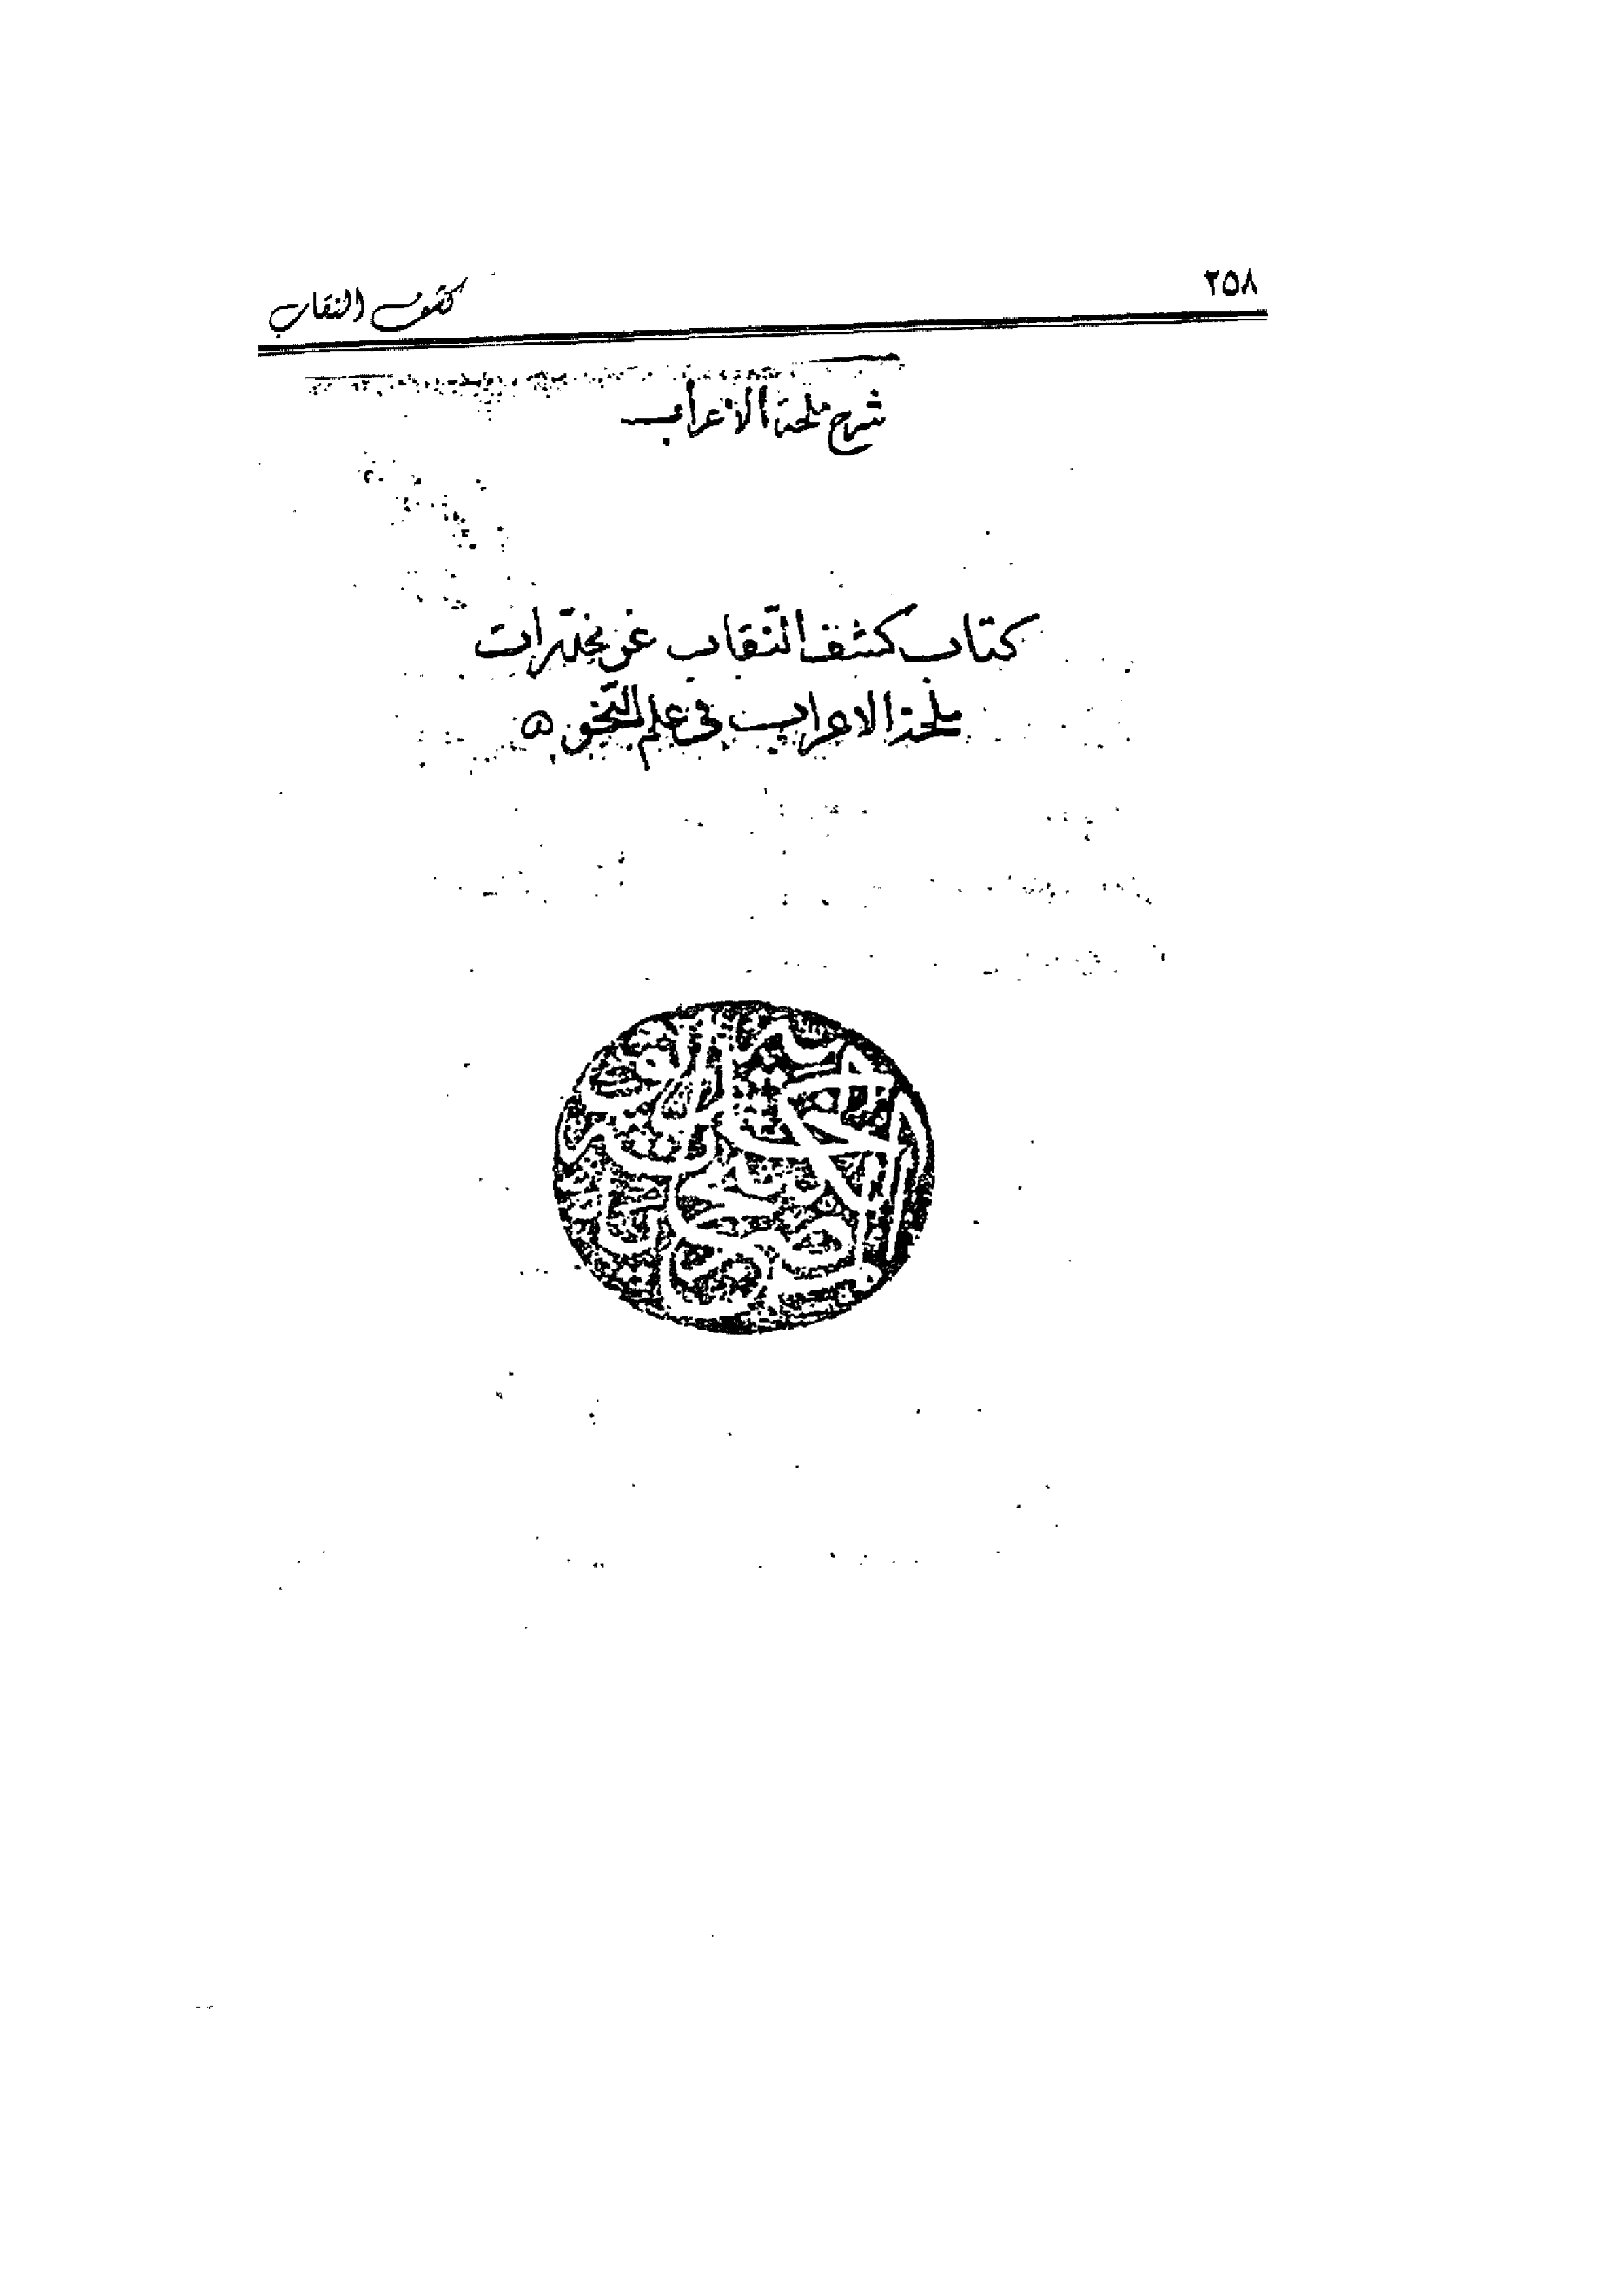 ٢٥٨
كشف النقاب
شرح ملحة الاعراب
كتاب كشف النقاب عن مخدرات
ملحة الاعراب في علم النحو ه